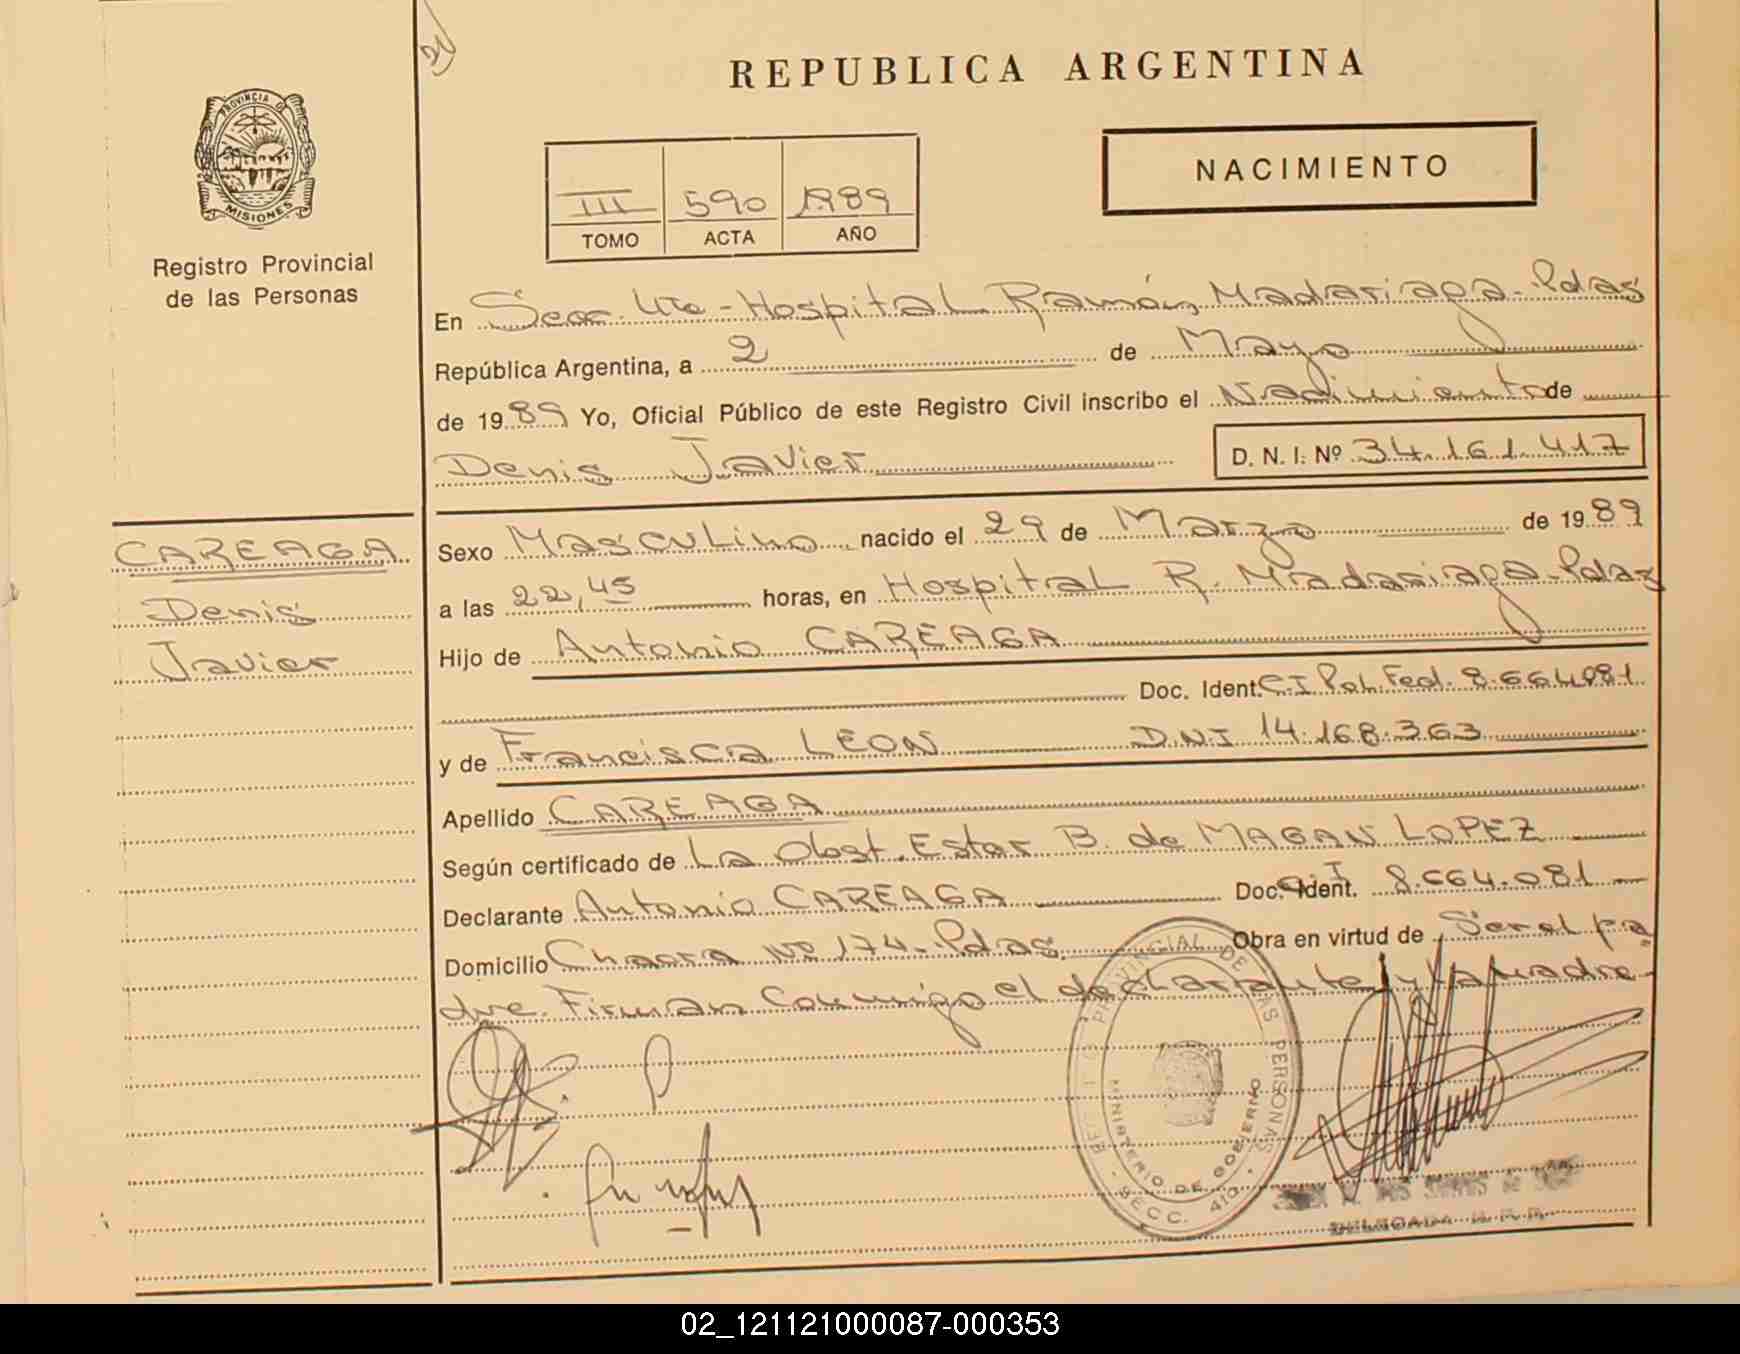 REPUBLICA ARGENTINA
PROVINCIA DE
MISIONES
Registro Provincial
de las Personas
III 590 1989
TOMO ACTA AÑO
NACIMIENTO
En Secc. 4ta - Hospital Ramón Madariaga - Pdas
República Argentina, a 2 de Mayo
de 1989 Yo, Oficial Público de este Registro Civil inscribo el Nacimiento de
Denis Javier D. N. I. Nº 34.161.417
CAREAGA
Denis
Javier
Sexo Masculino nacido el 29 de Marzo de 1989
a las 22,45 horas, en Hospital R. Madariaga - Pdas
Hijo de Antonio CAREAGA
Doc. Ident. C.I Pol. Fed. 8.664.081
y de Francisca LEON DNI 14.168.363
Apellido CAREAGA
Según certificado de La Obst. Ester B. de MAGAN LOPEZ
Declarante Antonio CAREAGA Doc. Ident. C.I 8.664.081
Domicilio Chacra Nº 174 - Pdas. Obra en virtud de Ser el pa
dre. Firman Conmigo el declarante y la madre -
PROVINCIAL DE LAS PERSONAS
MINISTERIO DE GOBIERNO
SECC. 4ta
DELEGADA R.P.P.
02_121121000087-000353